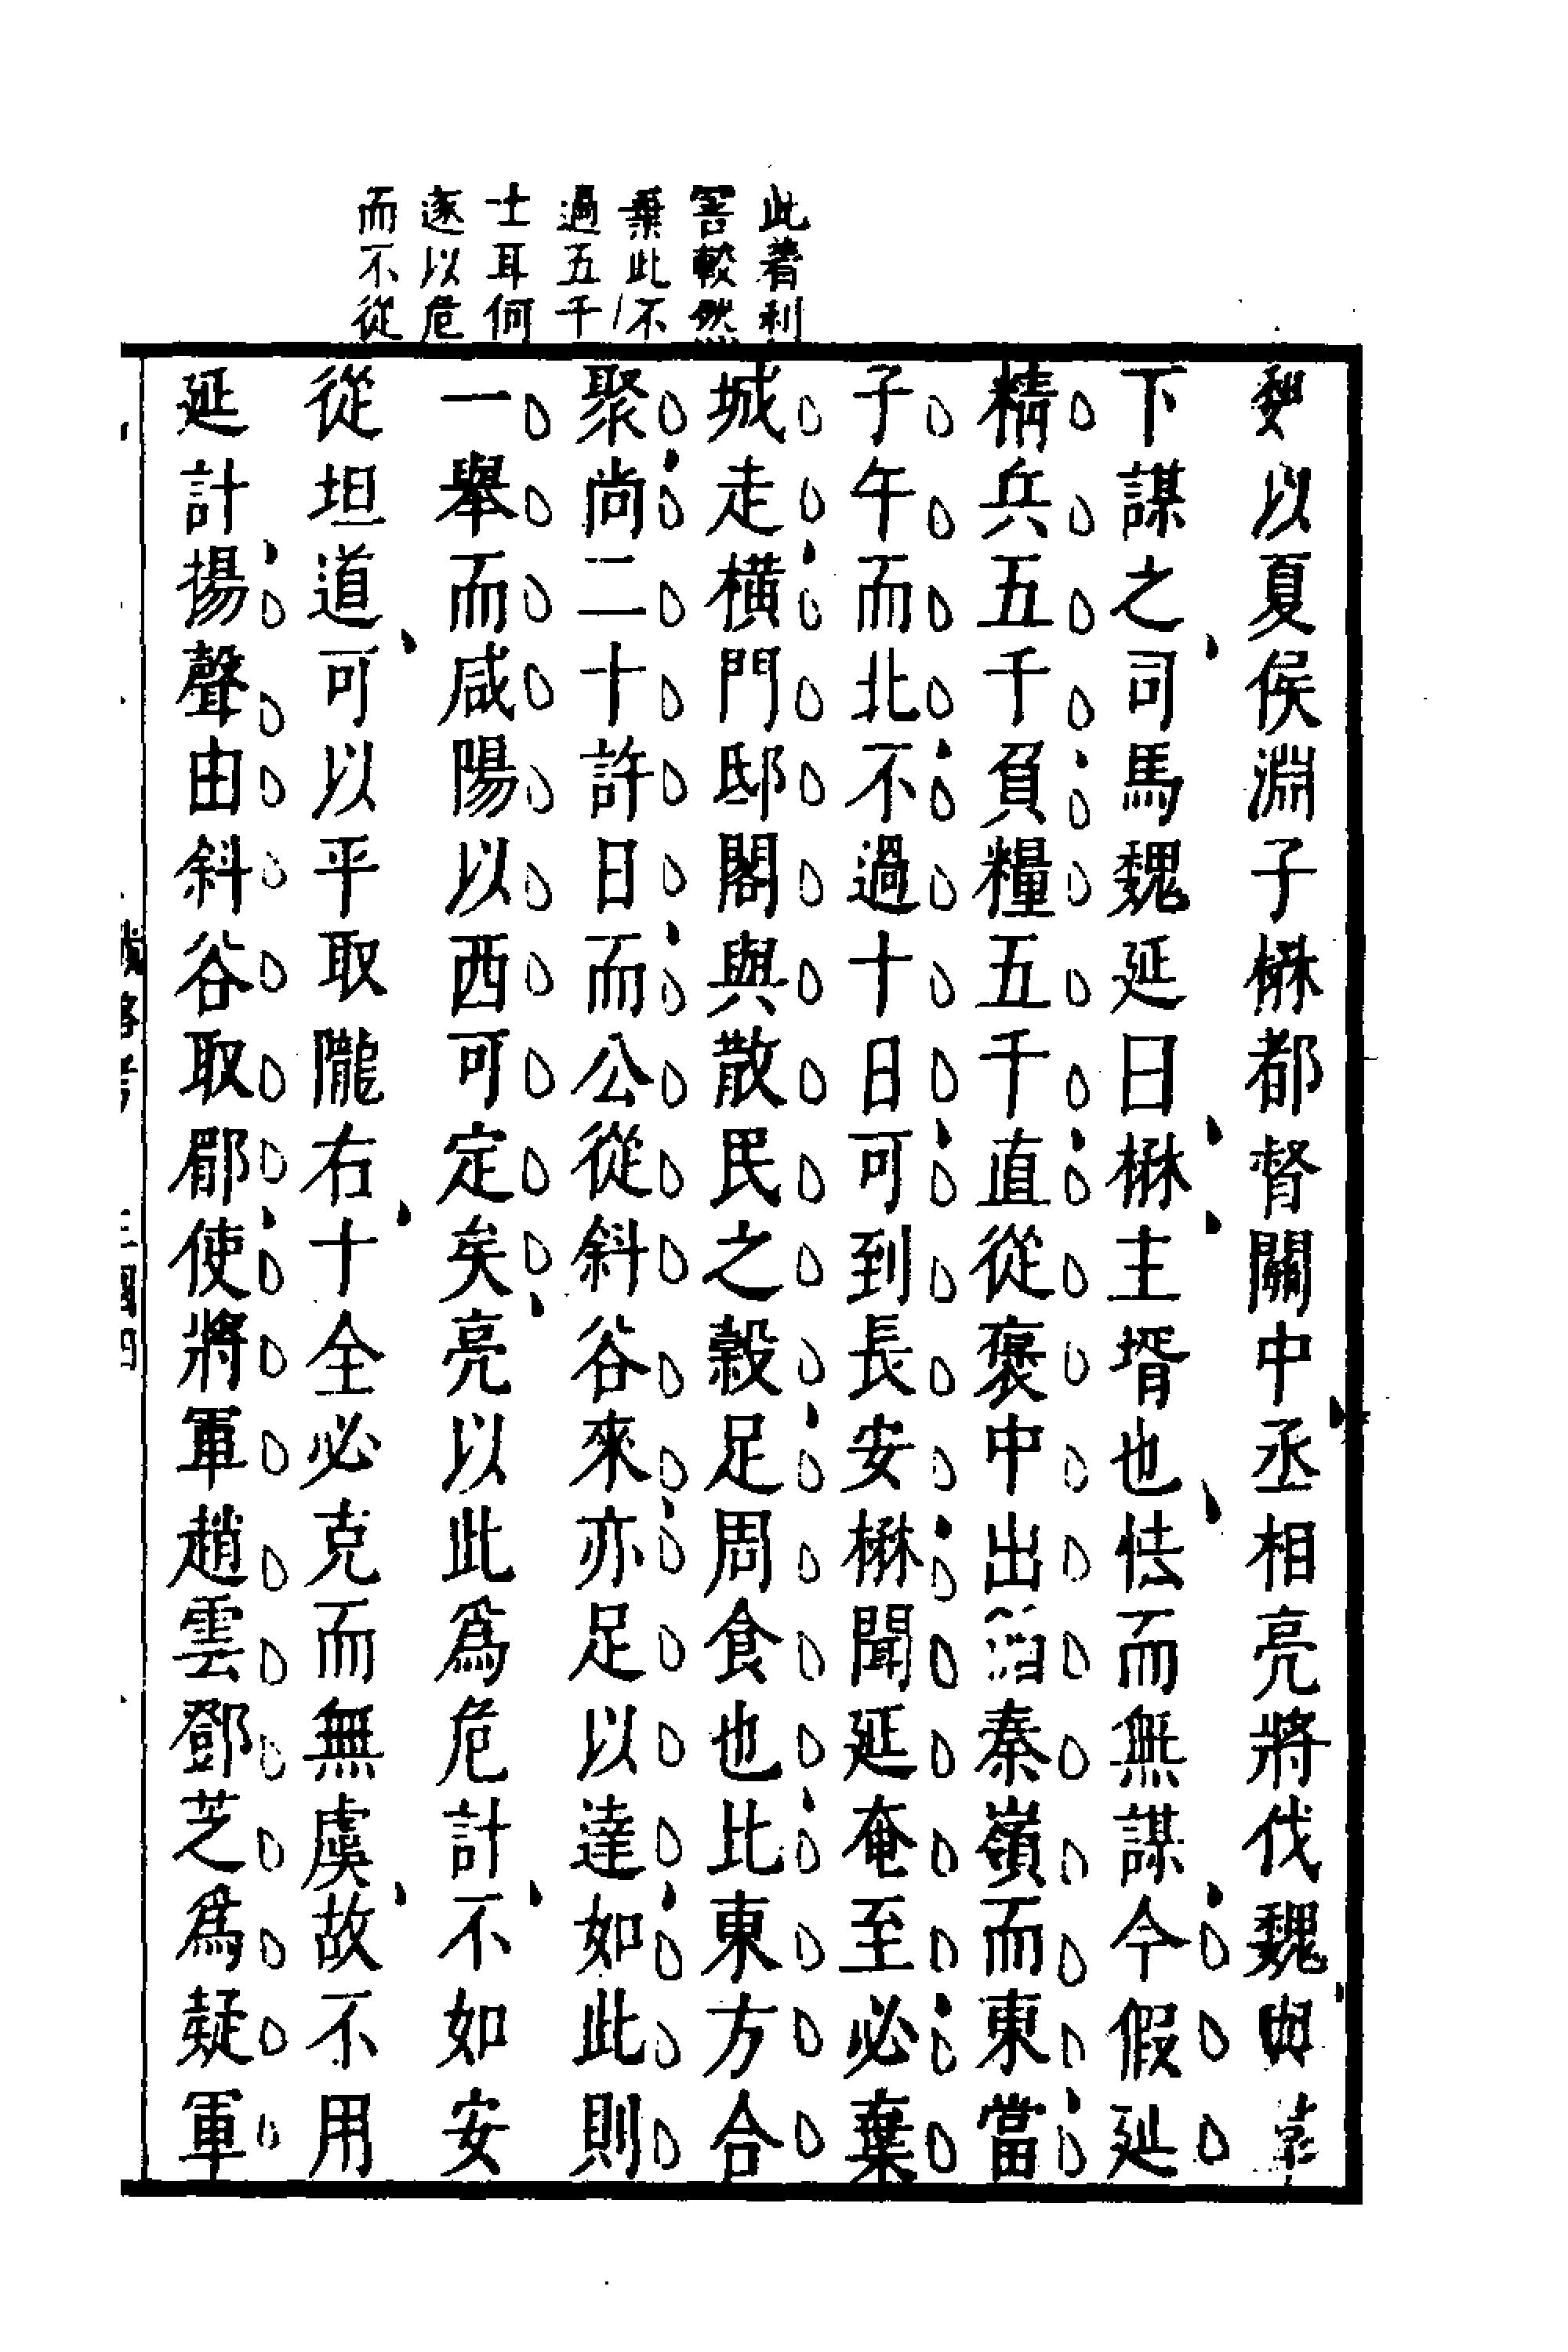 此着利
害較然
棄此不
過五千
士耳何
遂以危
而不從
魏以夏侯淵子楙都督關中丞相亮將伐魏與羣
下謀之司馬魏延曰楙主壻也怯而無謀今假延
精兵五千負糧五千直從褒中出循秦嶺而東當
子午而北不過十日可到長安楙聞延奄至必棄
城走橫門邸閣與散民之穀足周食也比東方合
聚尚二十許日而公從斜谷來亦足以達如此則
一舉而咸陽以西可定矣亮以此爲危計不如安
從坦道可以平取隴右十全必克而無虞故不用
延計揚聲由斜谷取郿使將軍趙雲鄧芝爲疑軍
戰略考 三國四